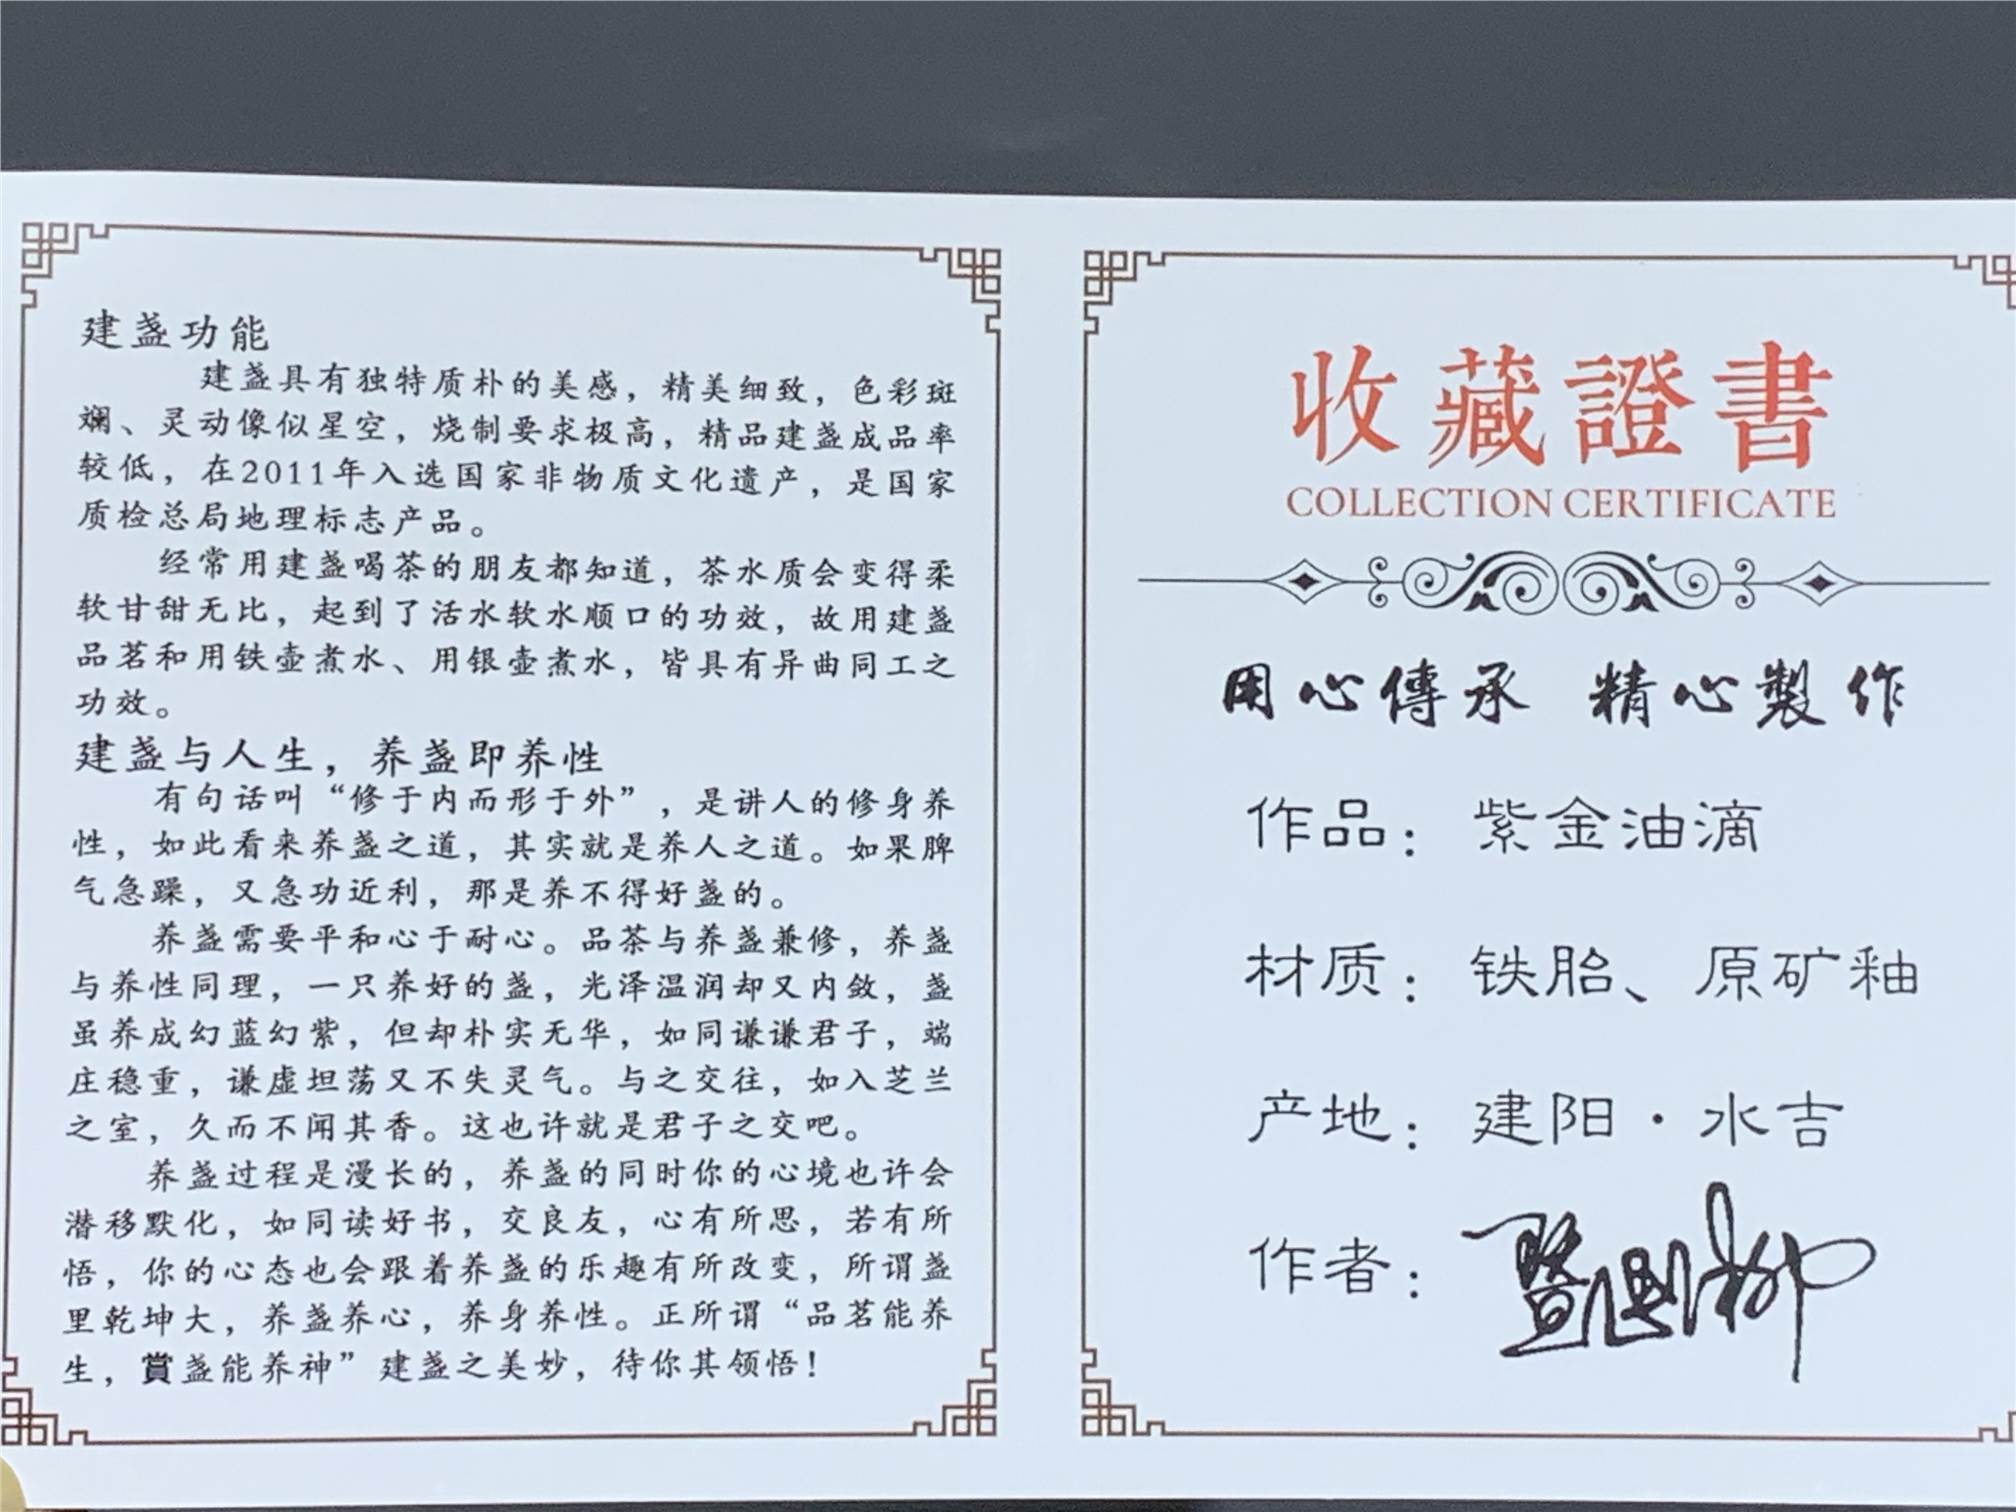 建盏功能
建盏具有独特质朴的美感，精美细致，色彩斑
斓、灵动像似星空，烧制要求极高，精品建盏成品率
较低，在2011年入选国家非物质文化遗产，是国家
质检总局地理标志产品。
经常用建盏喝茶的朋友都知道，茶水质会变得柔
软甘甜无比，起到了活水软水顺口的功效，故用建盏
品茗和用铁壶煮水、用银壶煮水，皆具有异曲同工之
功效。
建盏与人生，养盏即养性
有句话叫“修于内而形于外”，是讲人的修身养
性，如此看来养盏之道，其实就是养人之道。如果脾
气急躁，又急功近利，那是养不得好盏的。
养盏需要平和心于耐心。品茶与养盏兼修，养盏
与养性同理，一只养好的盏，光泽温润却又内敛，盏
虽养成幻蓝幻紫，但却朴实无华，如同谦谦君子，端
庄稳重，谦虚坦荡又不失灵气。与之交往，如入芝兰
之室，久而不闻其香。这也许就是君子之交吧。
养盏过程是漫长的，养盏的同时你的心境也许会
潜移默化，如同读好书，交良友，心有所思，若有所
悟，你的心态也会跟着养盏的乐趣有所改变，所谓盏
里乾坤大，养盏养心，养身养性。正所谓“品茗能养
生，賞盏能养神”建盏之美妙，待你其领悟！
收藏證書
COLLECTION CERTIFICATE
用心傳承 精心製作
作品：紫金油滴
材质：铁胎、原矿釉
产地：建阳·水吉
作者：